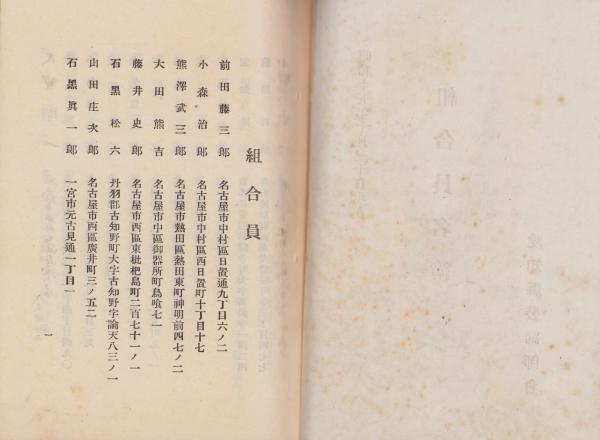 組合員
前田藤三郎 名古屋市中村區日置通九丁目六ノ二
小森治郎 名古屋市中村區西日置町十丁目十七
熊澤武三郎 名古屋市熱田區熱田東町神明前四七ノ二
大田熊吉 名古屋市中區御器所町鳥喰七一
藤井史郎 名古屋市西區東枇杷島町二百七十一ノ一
石黑松六 丹羽郡古知野町大字古知野字論天八三ノ一
山田庄次郎 名古屋市西區廣井町三ノ五二
石黑眞一郎 一宮市元古見通一丁目一
一